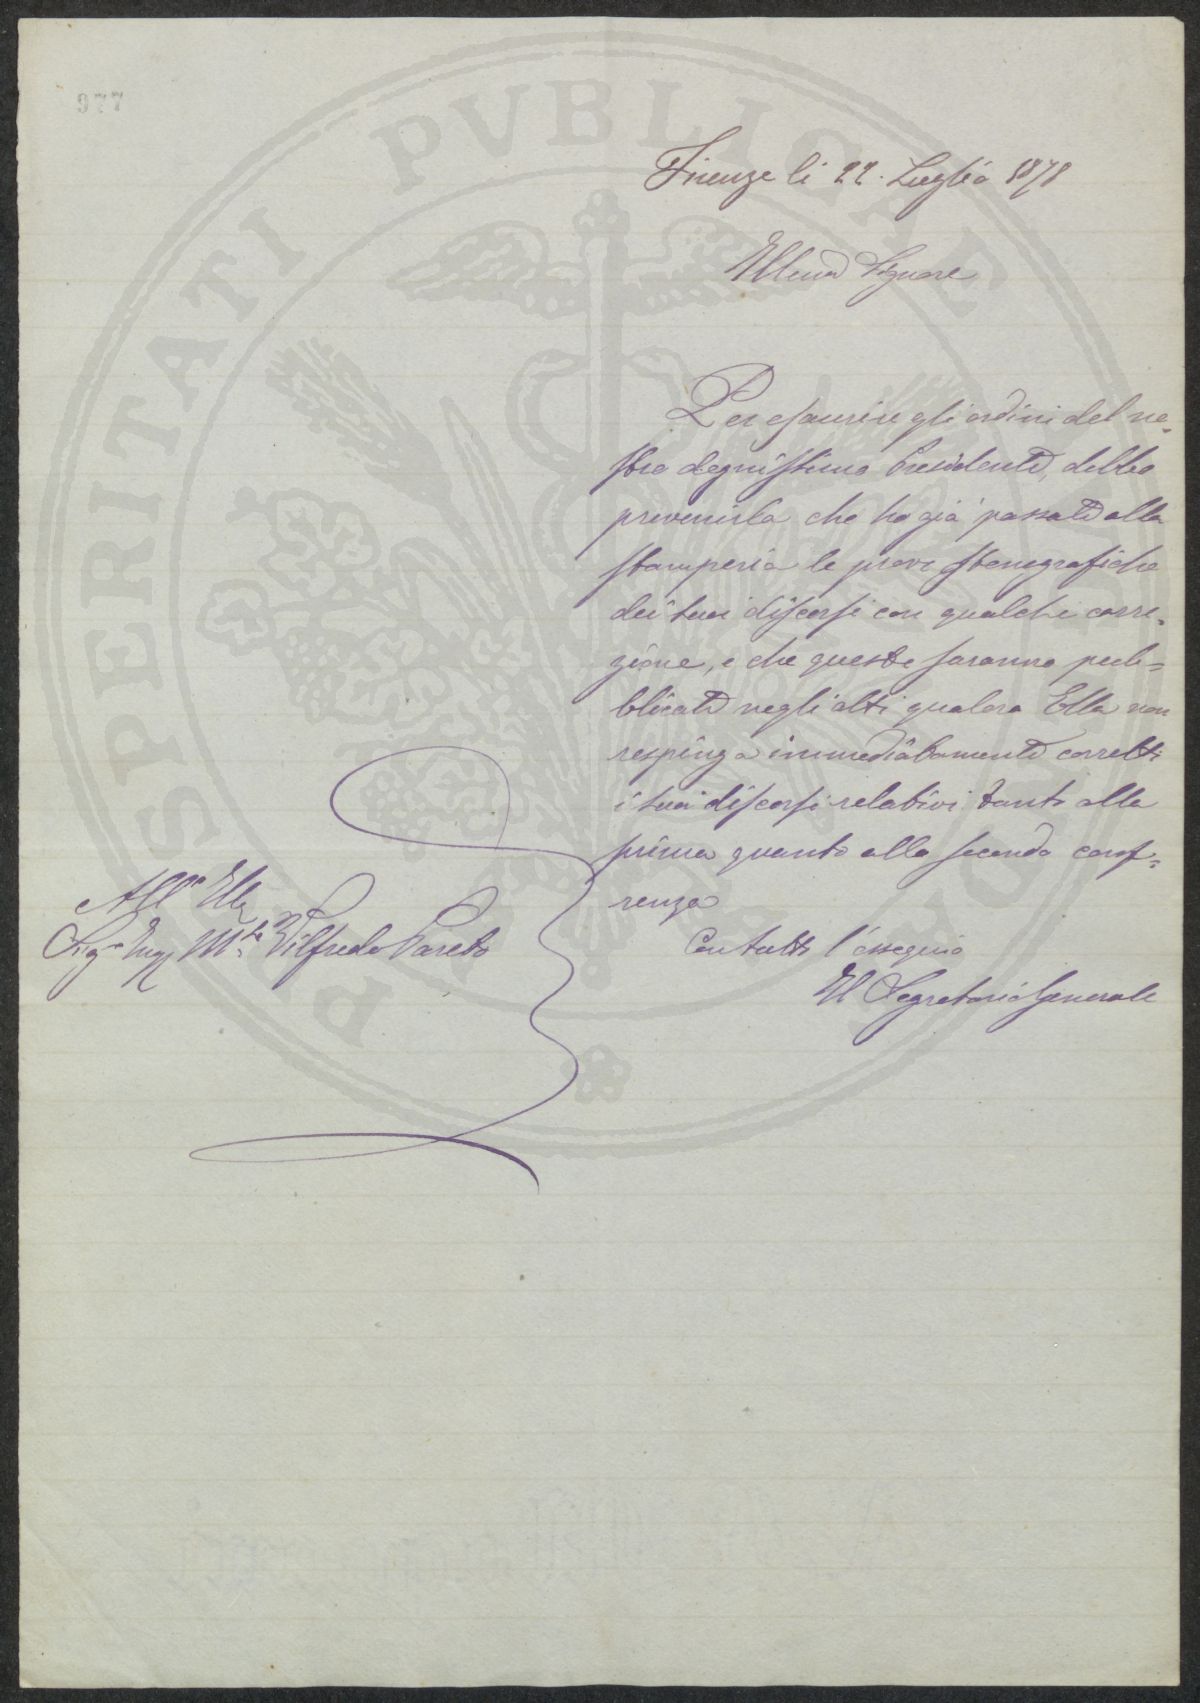 977
Firenze li 22. Luglio 1878
Illmo Signore
Per esaurire gli ordini del no=
stro degnissimo Presidente, debbo
prevenirla che ho già passate alla
stamperia le prove stenografiche
dei suoi discorsi con qualche corre=
zione, e che queste saranno pub=
blicate negli atti qualora Ella non
respinga immediatamente corretti
i suoi discorsi relativi tanto alla
prima quanto alla seconda conf=
renza
Con tutto l'ossequio
Il Segretario Generale
All'
Sigr Ing Mse Vilfredo Pareto
PROSPERITATI PVBLICAE